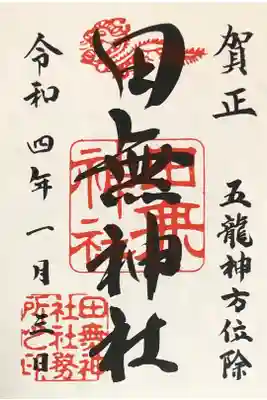 賀正
五龍神方位除
田無神社
令和四年一月三日
田無神社
田無神社社務所之印